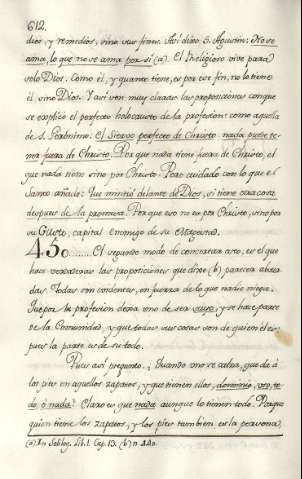 612.
dios, y remedios, sino sus fines. Assi dixo S. Agustin: No se
ama, lo que no se ama por si (a). El Religioso vive para
solo Dios. Como él, y quanto tiene, es por ese fin, no lo tiene
él, sino Dios. Y assi ven muy claras las proposiciones con que
se explica el perfecto holocausto de la profesion: como aquella
de S. El Siervo perfecto de Christo nada puede te-
ner fuera de Christo. Por que nada tiene fuera de Christo, el
que nada tiene sino por Christo. Pero cuidado con lo que el
Santo añade: Que mintió delante de Dios, si tiene otra cosa
despues de la promesa. Por que eso no es por Christo, sino por
su Gusto, capital enemigo de su Magestad.
450........ El segundo modo de comparar esto, es el que
hace verdaderas las proposiciones que dixe (b) parecen absur-
das. Todas son evidentes, en fuerza de lo que nadie niega.
Que por la profesion dexa uno de ser suyo, y se hace parte
de la Comunidad, y que todas sus cosas son de quien él es:
pues la parte es de su todo.
Pues assi pregunto. ¿Quando uno se calza, que dá á
los pies en aquellos zapatos, y que tienen ellos, dominio, uso, to-
do, ó nada? Claro es que nada aunque lo tienen todo. Porque
quien tiene los zapatos, y los pies tambien es la persona.
(b) n. 440.